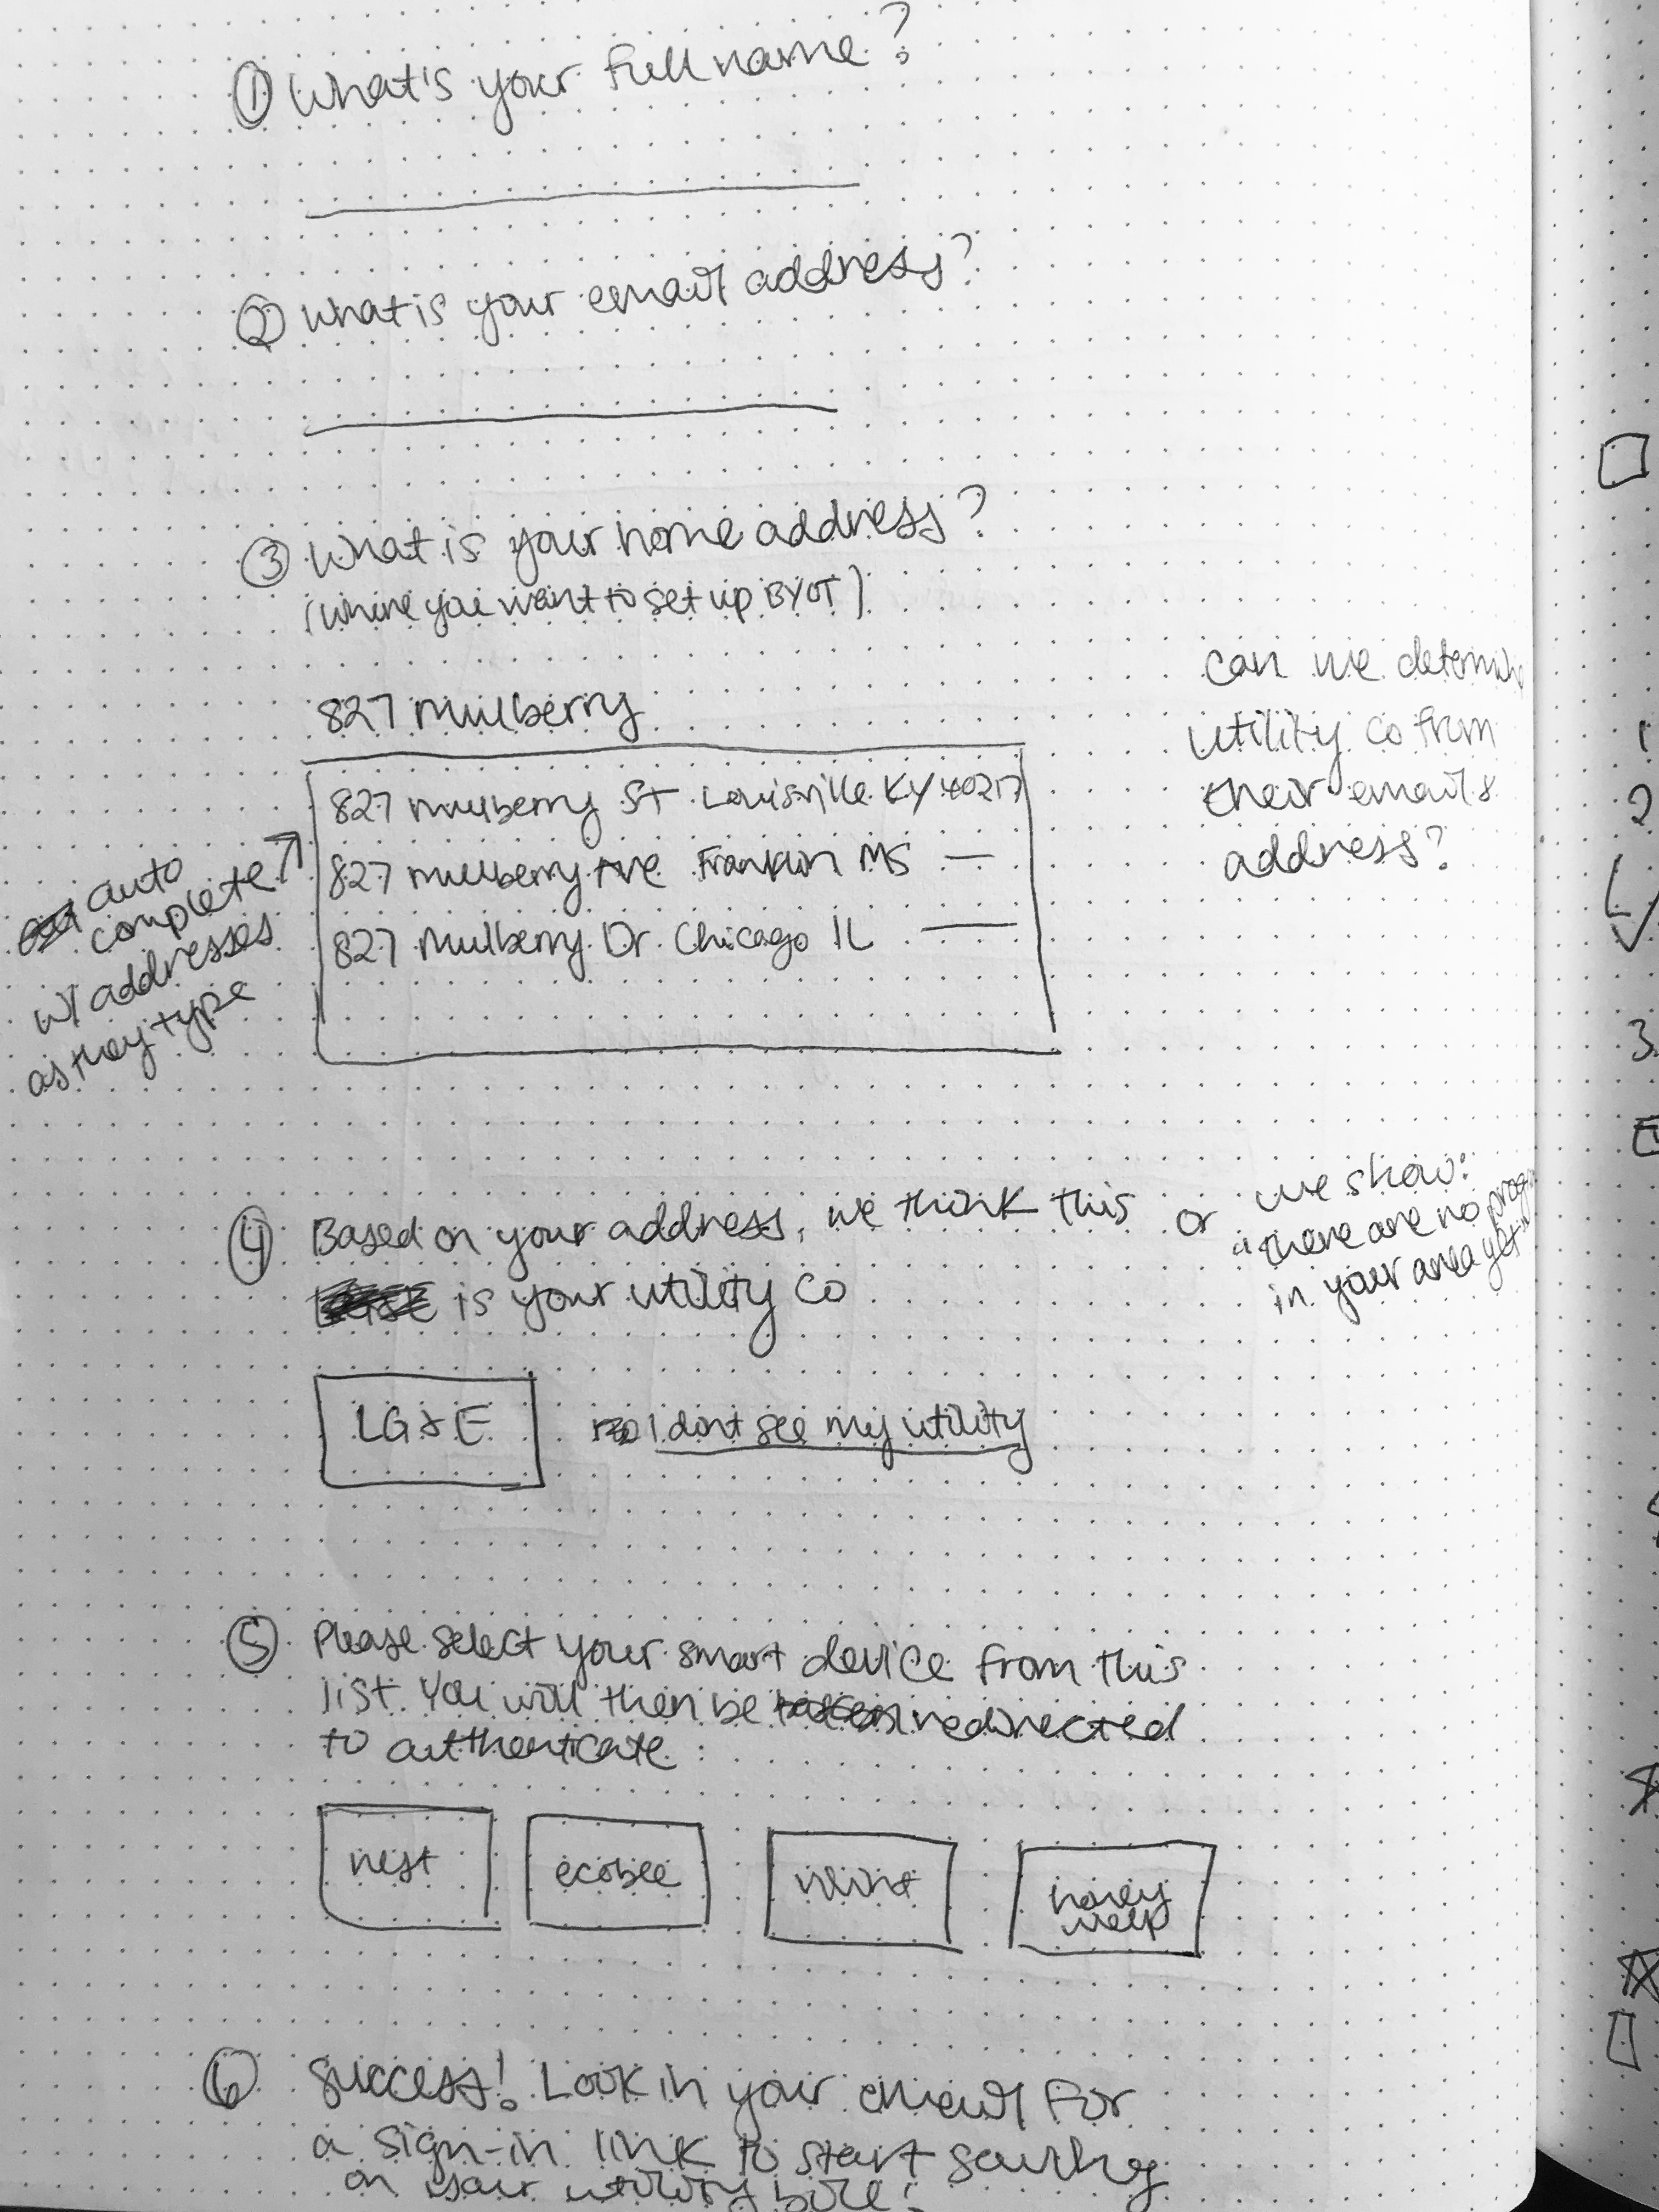 ① What's your full name?
② What is your email address?
③ What is your home address?
(where you want to set up BYOT)
827 Mulberry
827 Mulberry St Louisville KY 40217
827 Mulberry Ave Franklin MS —
827 Mulberry Dr. Chicago IL —
auto
complete
w/ addresses
as they type
can we determine
utility co from
their email &
address?
④ Based on your address, we think this
is your utility co
or we show:
"there are no prog
in your area yet"
LG&E
I dont see my utility
⑤ Please select your smart device from this
list. You will then be redirected
to authenticate:
nest
ecobee
vivint
honey
well
⑥ Success! Look in your email for
a sign-in link to start saving
on your utility bill!
1
2
3.